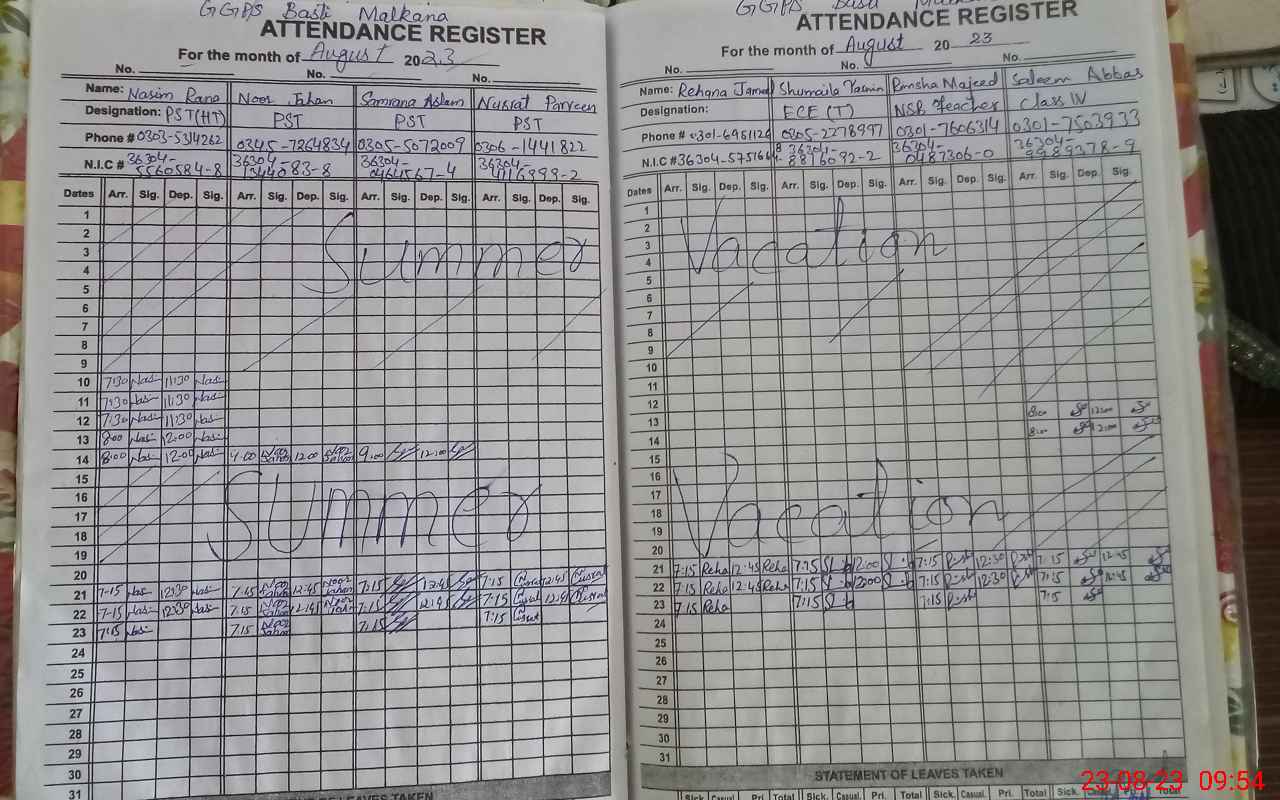 GGPS Basti Malkana
ATTENDANCE REGISTER
For the month of August 2023
No. No. No.
Name: Nasim Rana Noor Jahan Samrana Aslam Nusrat Parveen
Designation: PST(HT) PST PST PST
Phone # 0303-5314262 0345-7264834 0305-5072009 0306-1441822
N.I.C # 36304- 36304- 36304- 36304-
5560584-8 1344083-8 0464567-4 4116999-2
Dates Arr. Sig. Dep. Sig. Arr. Sig. Dep. Sig. Arr. Sig. Dep. Sig. Arr. Sig. Dep. Sig.
1
2
3 Summer
4
5
6
7
8
9
10 7:30 Nasi 11:30 Nasi
11 7:30 Nasi 11:30 Nasi
12 7:30 Nasi 11:30 Nasi
13 8:00 Nasi 12:00 Nasi
14 8:00 Nasi 12:00 Nasi Noor Jahan 12:00 Noor Jahan 9:00 12:00
15
16
17 Summer
18
19
20
21 7:15 Nasi 12:30 Nasi 7:45 Noor Jahan 12:45 Noor Jahan 7:15 12:45 7:15 Nusrat 12:45 Nusrat
22 7:15 Nasi 12:30 Nasi 7:15 Noor Jahan 12:45 Noor Jahan 7:15 12:45 7:15 Nusrat 12:45 Nusrat
23 7:15 Nasi 7:15 Noor Jahan 7:15 7:15 Nusrat
24
25
26
27
28
29
30
31
OF LEAVES TAKEN
GGPS Basti
ATTENDANCE REGISTER
For the month of August 2023
No. No. No.
Name: Rehana Shumaila Yasmin Rimsha Majeed Saleem Abbas
Designation: ECE (T) NSB Teacher Class IV
Phone # 0301-6981124 0305-2278997 0301-7606314 0301-7503933
N.I.C # 36304- 36304- 36304- 36304-
8816092-2 0487306-0 9989378-9
Dates Arr. Sig. Dep. Sig. Arr. Sig. Dep. Sig. Arr. Sig. Dep. Sig. Arr. Sig. Dep. Sig.
1
2
3 Vacation
4
5
6
7
8
9
10
11
12
13 8:00 12:00
14 8:00 12:00
15
16
17
18 Vacation
19
20
21 7:15 Reha 12:45 Reha 7:15 12:00 7:15 12:30 7:15 12:45
22 7:15 Reha 12:45 Reha 7:15 12:00 7:15 12:30 7:15 12:45
23 7:15 Reha 7:15 7:15 7:15
24
25
26
27
28
29
30
31
STATEMENT OF LEAVES TAKEN
Sick Casual Pri. Total Sick. Casual. Pri. Total Sick. Casual. Pri. Total Sick. Total
23-08-23 09:54